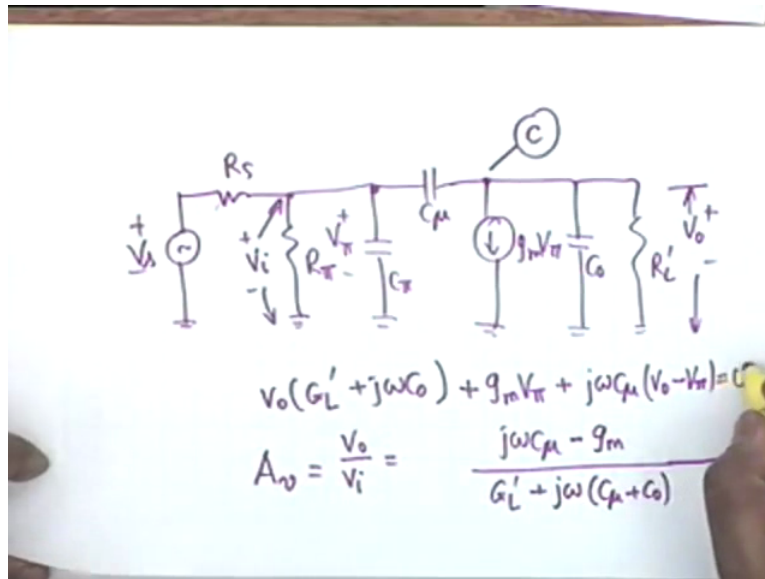 C
Rs
Cμ
+ Vs ~
+ Vi -
Rπ
+ Vπ -
Cπ
↓ gmVπ
Co
RL'
Vo + -
Vo(GL' + jωCo) + gmVπ + jωCμ(Vo-Vπ)=0
Av = Vo/Vi = (jωCμ - gm)/(GL' + jω(Cμ+Co))